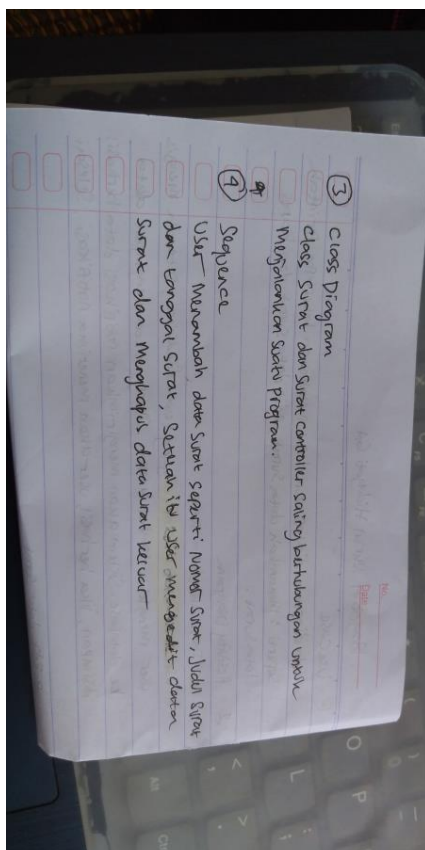 No.
Date
③ Class Diagram
Class Surat dan Surat Controller saling berhubungan untuk
Menjalankan Suatu Program.
④ Sequence
User Menambah data Surat Seperti Nomor Surat, Judul Surat
dan tanggal Surat, Setelah itu User mengedit data
Surat dan Menghapus data Surat keluar
O
P
L
<
>
,
.
Alt